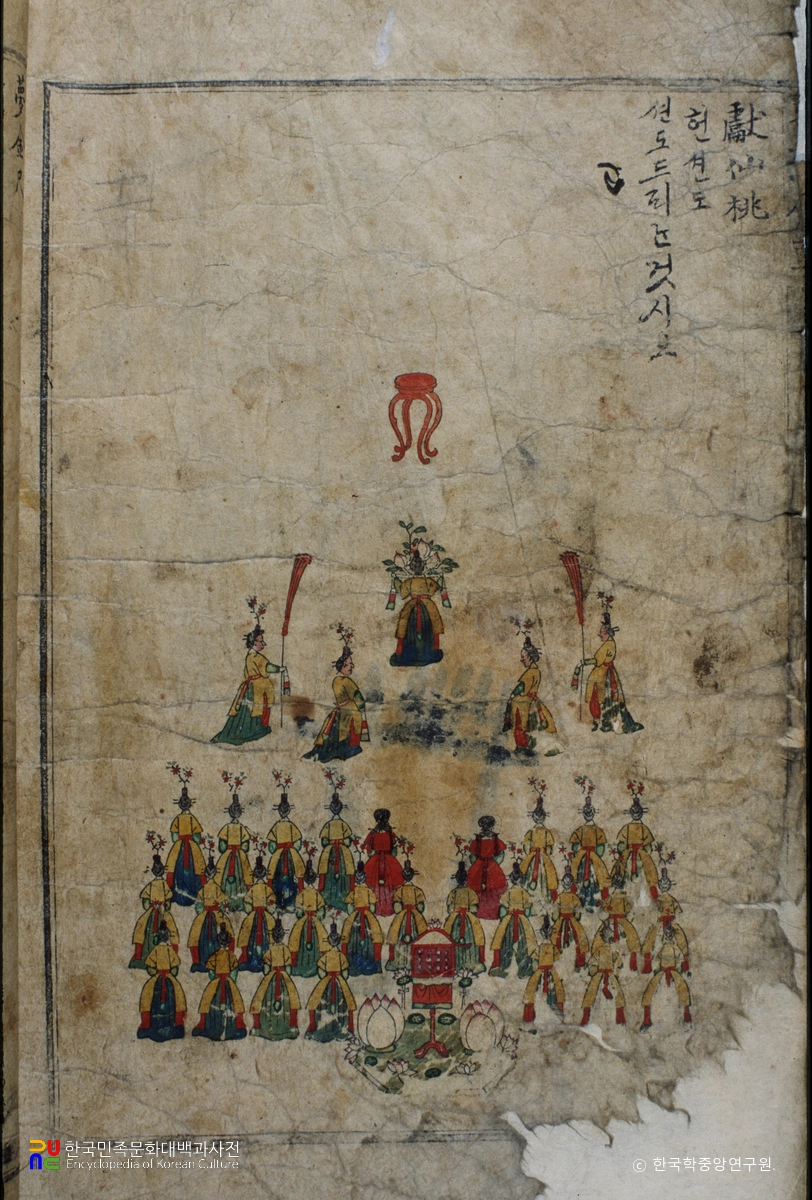 獻仙桃
헌션도
션도드리는것시오
한국민족문화대백과사전
Encyclopedia of Korean Culture
ⓒ 한국학중앙연구원.